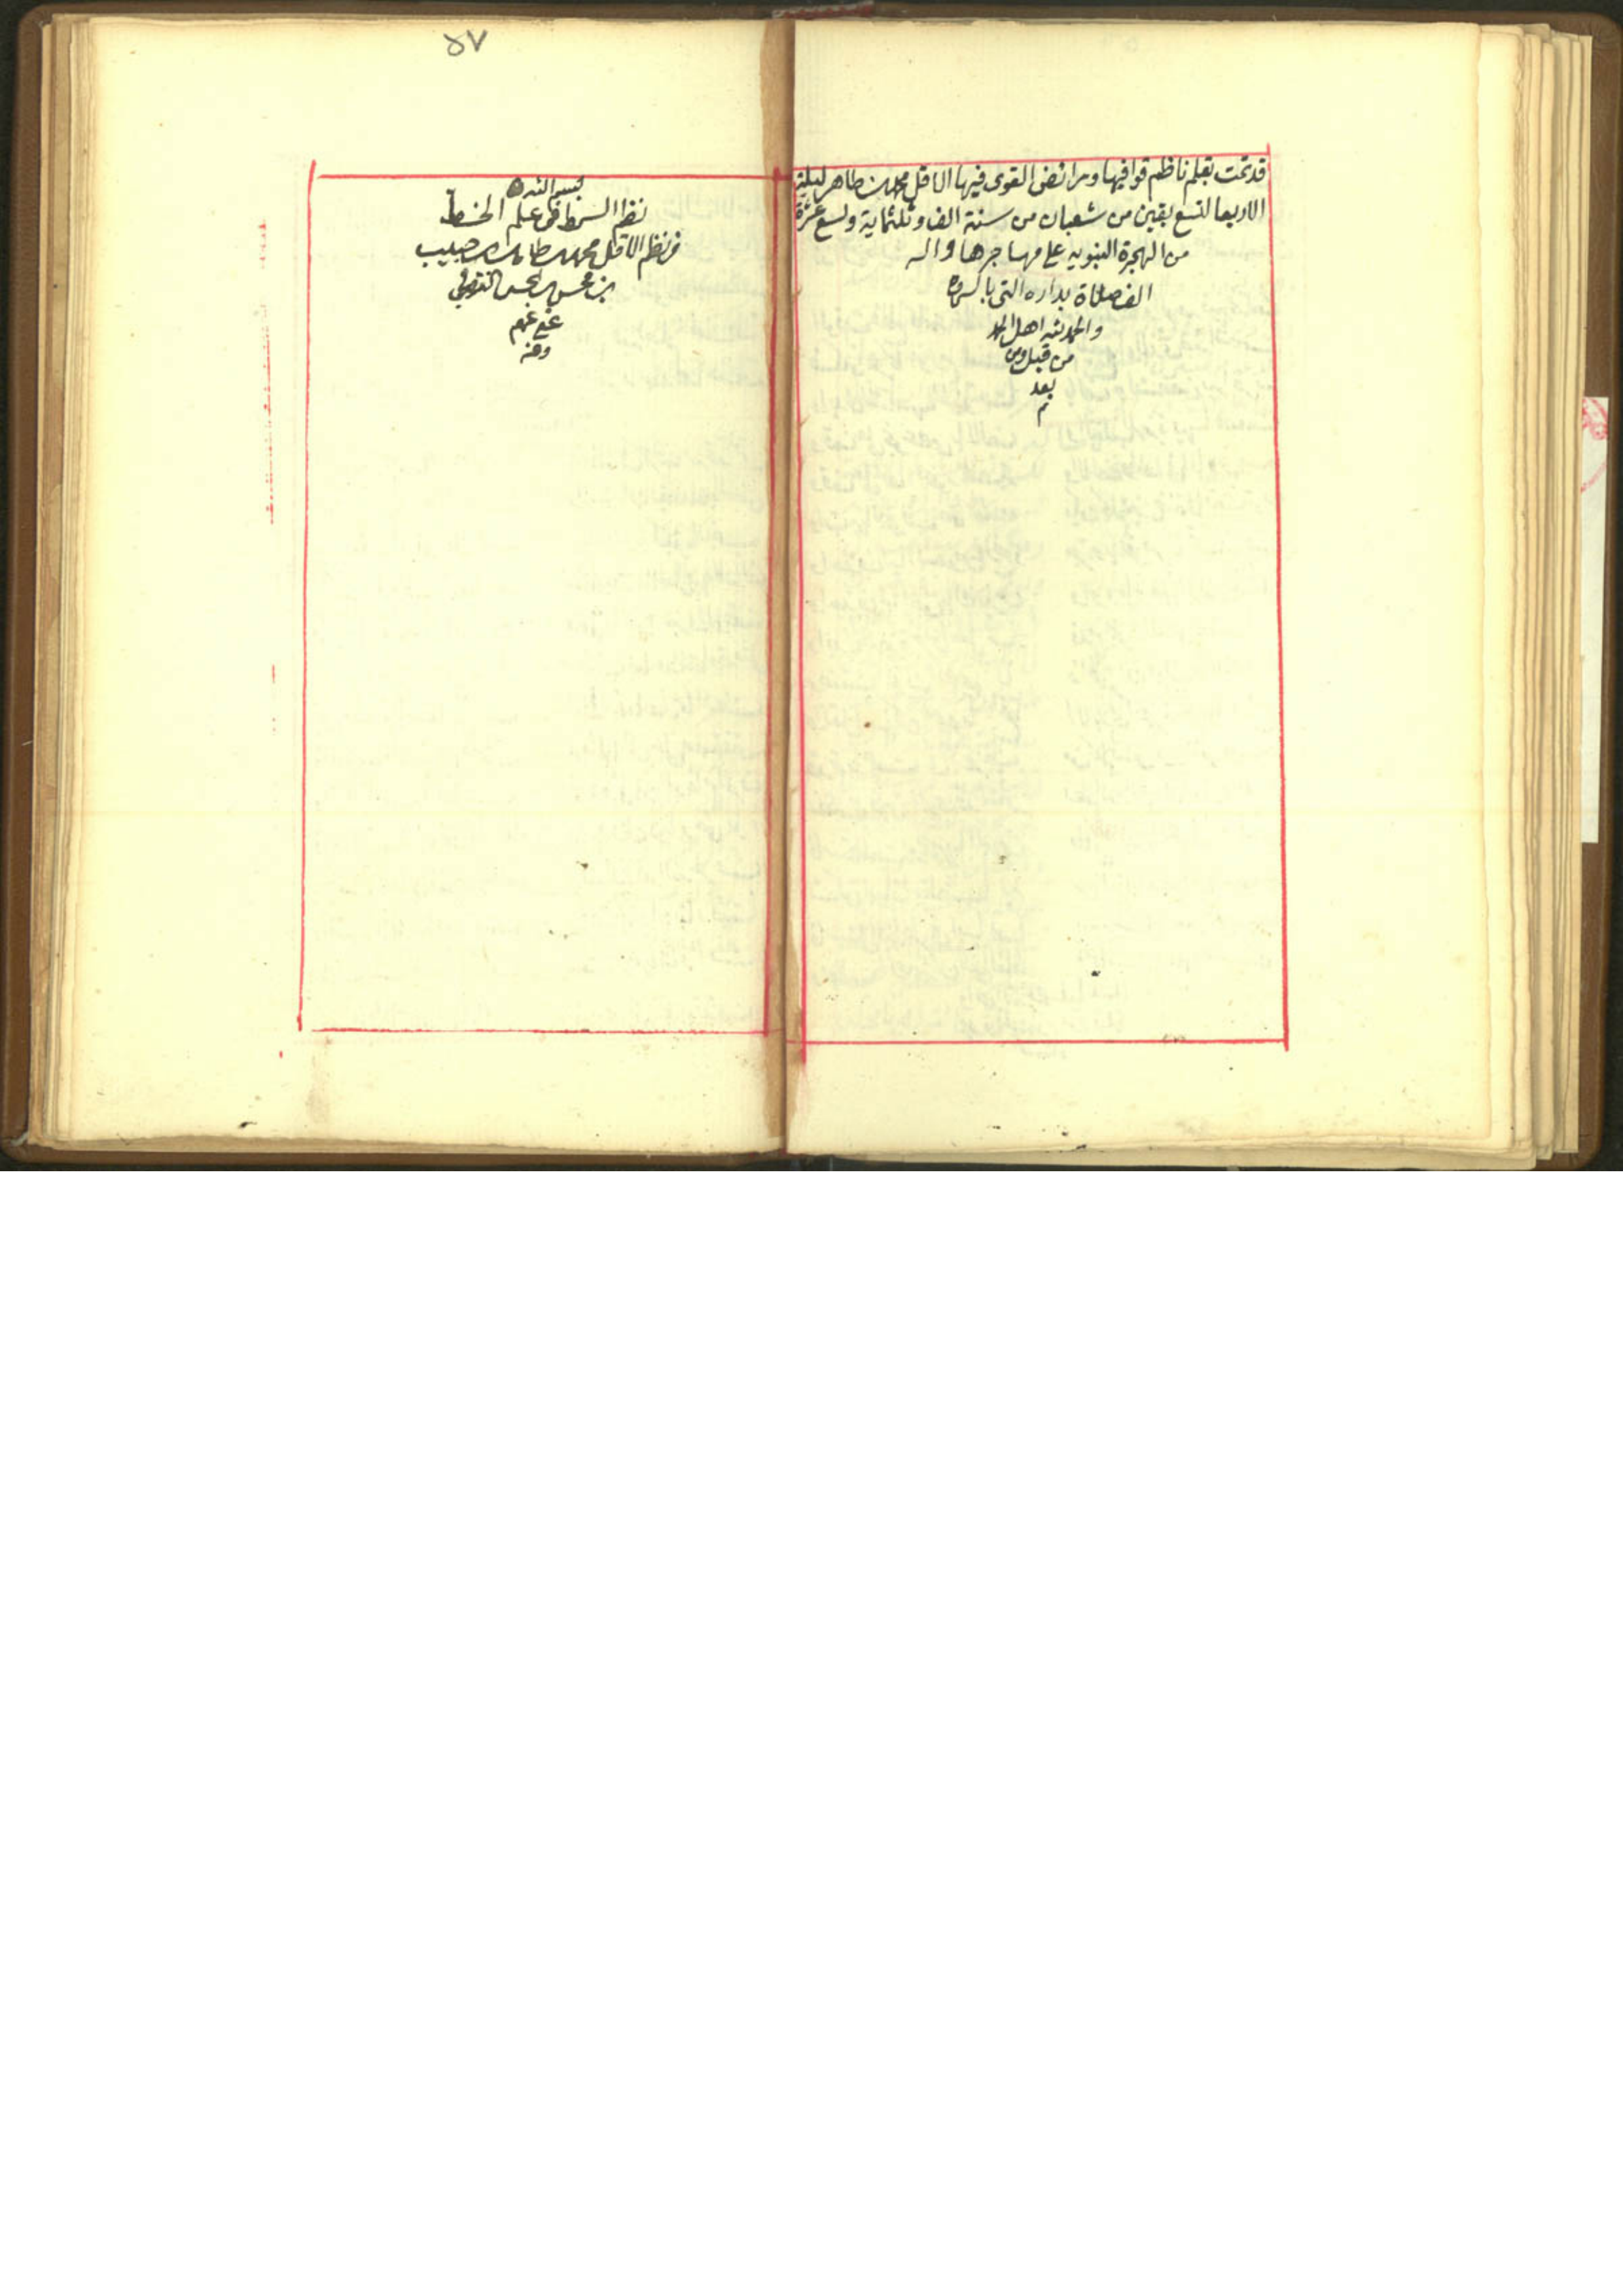 قد تمت بقلم ناظم قوافيها ومرائض القوى فيها الاقل محمد بن طاهر ليلة
الاربعا لتسع بقين من شعبان من سنة الف وثلثماية وتسع عشرة
من الهجرة النبوية على مهاجرها واله
الف صلاة بداره التي بالسماوه
والحمد لله اهل الحمد
من قبل ومن
بعد
تم
٥٧
بسم الله
نظم السمط في علم الخط
من نظم الاقل محمد بن طاهر بن حبيب
بن محسن بن
عفي عنهم